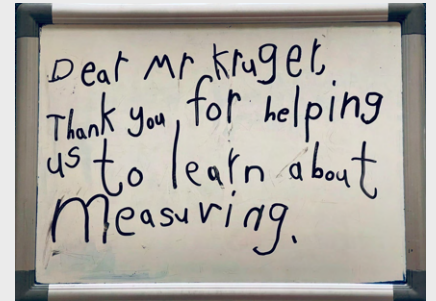 Dear Mr Kruger,
Thank you, for helping
us to learn about
measuring.